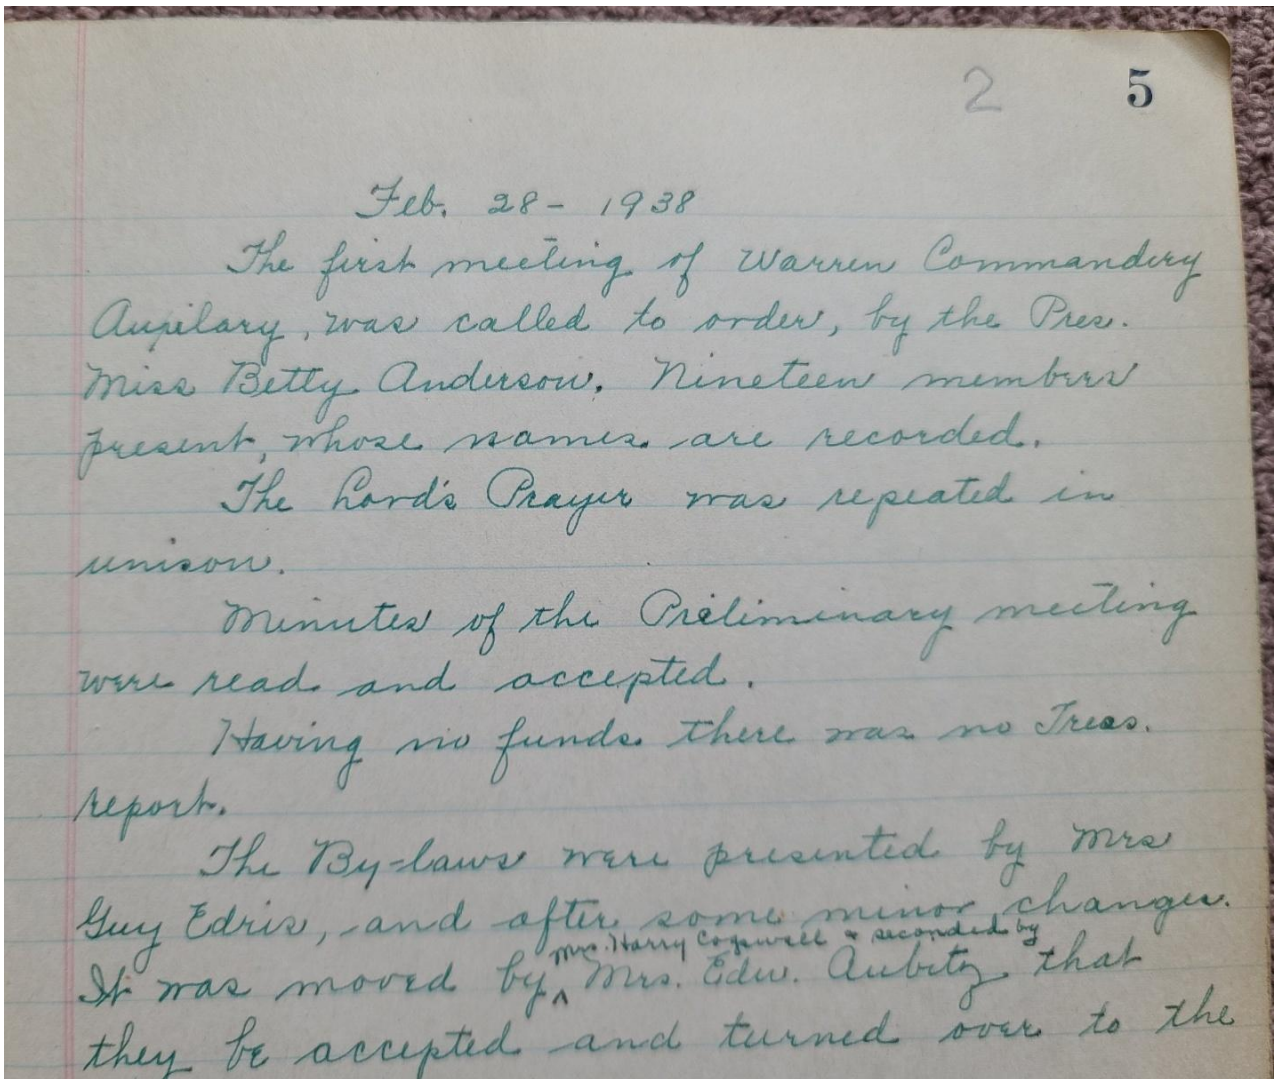 2 5
Feb. 28 - 1938
The first meeting of Warren Commandery
Auxilary, was called to order, by the Pres.
Miss Betty Anderson. Nineteen members
present, whose names are recorded.
The Lord's Prayer was repeated in
unison.
Minutes of the Preliminary meeting
were read and accepted.
Having no funds there was no Treas.
report.
The By-laws were presented by Mrs
Guy Edris, and after some minor changes.
Mrs. Harry Cogswell & seconded by
It was moved by ^ Mrs. Edw. Aubitz that
they be accepted and turned over to the